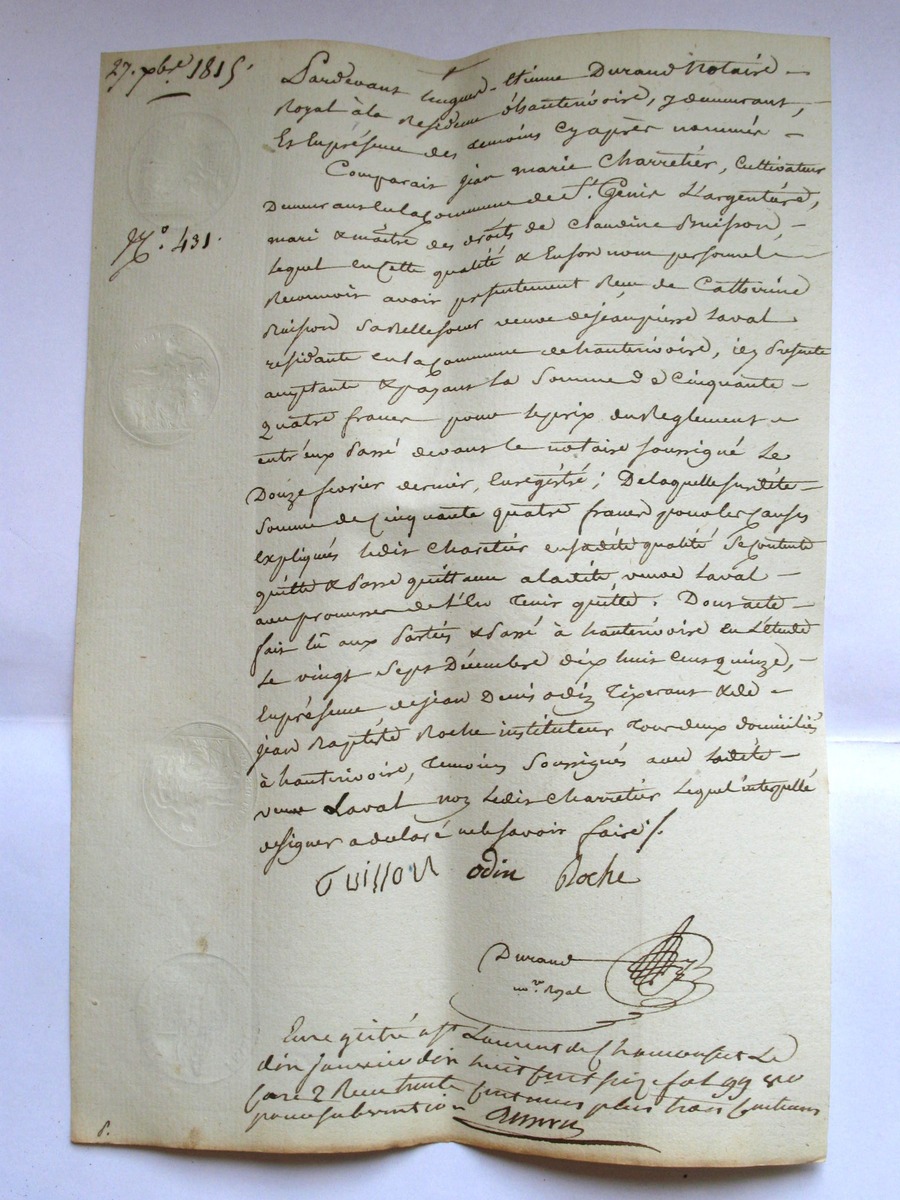 27. xbre 1815.
Nº. 431.
Pardevant Hugues-Etienne Durand Notaire
Royal à la Residence d'hauterivoire, y demeurant,
Et En présence des temoins cy après nommés
Comparait jean marie Charretier, Cultivateur
Demeurant en la Commune de St. Genis L'argentière,
mari & maitre des droits de Claudine Buisson,
Lequel en Cette qualité & En son nom personnel
Reconnoit avoir présentement Reçu de Catherine
Buisson Sa Bellesoeur veuve de jean pierre Laval
résidante en la Commune de hauterivoire, icy Présente
acceptante & payant La Somme De Cinquante
quatre francs pour le prix du Reglement
entr'eux Passé devant le notaire soussigné Le
Douze fevrier dernier, Enregistré; De laquelle susdite
Somme de Cinquante quatre francs pour les Causes
Expliqués ledit Charetier en sadite qualité Se Contente
quitte & Passe quittance a ladite veuve Laval
avec promesse de L'en Tenir quitte. Dont acte
fait Lû aux Parties & Passé à hauterivoire en L'étude
Le vingt Sept Décembre dix huit Cent quinze,
En présence de jean Denis odin Tixerant & de
jean Baptiste Roche instituteur Tous deux domiciliés
à hauterivoire, Temoins Soussignés avec Ladite
veuve Laval non Ledit Charretier Lequel interpellé
de signer a declaré ne le savoir faire /.
Buisson odin Roche
Durand
nore Royal
Enregistré a St Laurent de Chamousset Le
dix Janvier dix huit Cent seize fol 99 vo
Case 2 Reçu trente Centimes plus trois Centimes
pour subvention